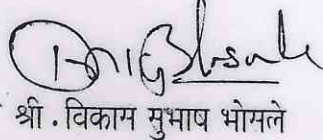 श्री . विकास सुभाष भोसले